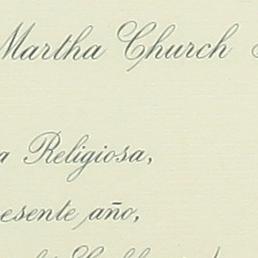 Martha Church
a Religiosa,
esente año,